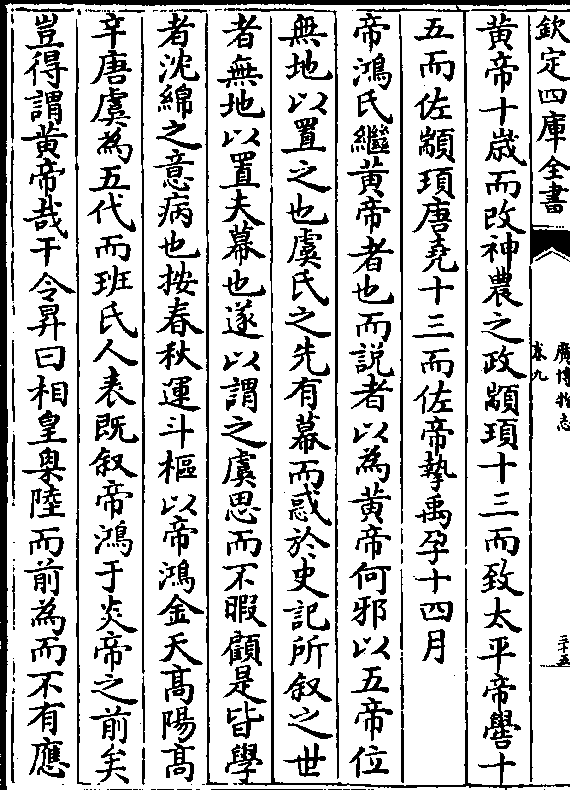 欽定四庫全書
廣博物志
卷九
三十五
黃帝十歲而改神農之政顓頊十三而致太平帝嚳十
五而佐顓頊唐堯十三而佐帝摯禹孕十四月
帝鴻氏繼黃帝者也而説者以為黃帝何邪以五帝位
無地以置之也虞氏之先有幕而惑於史記所叙之世
者無地以置夫幕也遂以謂之虞思而不暇顧是皆學
者沈綿之意病也按春秋運斗樞以帝鴻金天髙陽髙
辛唐虞為五代而班氏人表既叙帝鴻于炎帝之前矣
豈得謂黃帝哉干令昇曰柏皇奥陸而前為而不有應